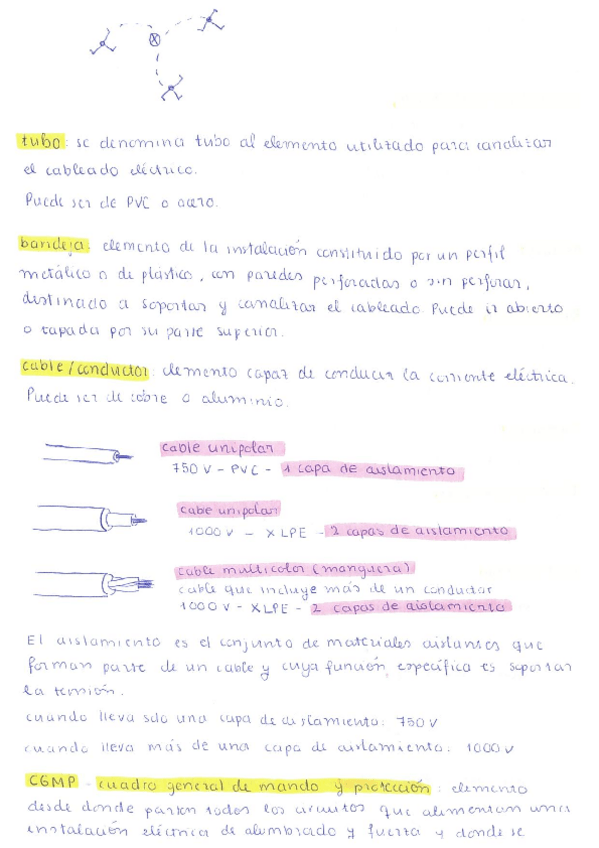 tubo: se denomina tubo al elemento utilizado para canalizar
el cableado eléctrico.
Puede ser de PVC o acero.
bandeja: elemento de la instalación constituido por un perfil
metálico o de plástico, con paredes perforadas o sin perforar,
destinado a soportar y canalizar el cableado. Puede ir abierto
o tapada por su parte superior.
cable/conductor: elemento capaz de conducir la corriente eléctrica.
Puede ser de cobre o aluminio.
cable unipolar
750 V - PVC - 1 capa de aislamiento
cabe unipolar
1000 V - XLPE - 2 capas de aislamiento
cable multicolor (manguera)
cable que incluye más de un conductor
1000 V - XLPE - 2 capas de aislamiento
El aislamiento es el conjunto de materiales aislantes que
forman parte de un cable y cuya función específica es soportar
la tensión.
cuando lleva solo una capa de aislamiento: 750 V
cuando lleva más de una capa de aislamiento: 1000 V
CGMP - cuadro general de mando y protección: elemento
desde donde parten todos los circuitos que alimentan una
instalación eléctrica de alumbrado y fuerza y donde se